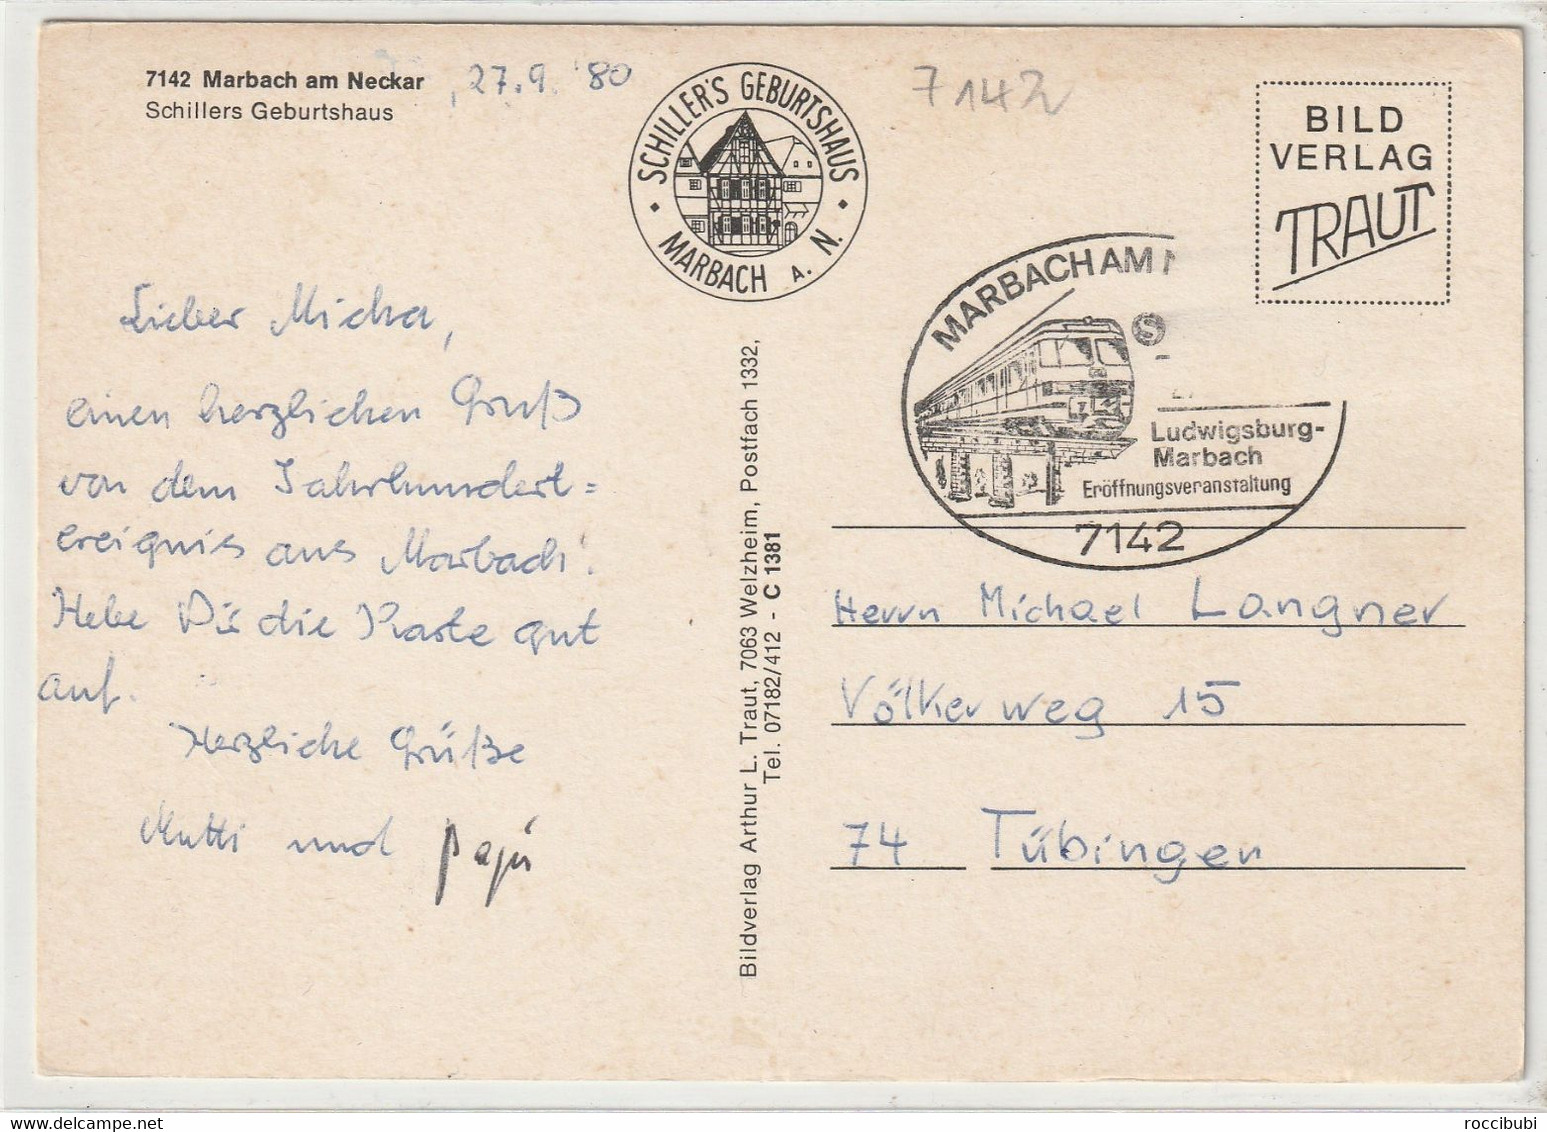 7142 Marbach am Neckar
, 27.9. '80
Schillers Geburtshaus
SCHILLER'S GEBURTSHAUS
MARBACH A. N.
7142
BILD
VERLAG
TRAUT
MARBACH AM
S
Ludwigsburg-
Marbach
Eröffnungsveranstaltung
7142
Lieber Micha,
einen herzlichen Gruß
von dem Jahrhundert=
ereignis aus Marbach!
Hebe Dir die Karte gut
auf.
Herzliche Grüße
Mutti und Papi
Bildverlag Arthur L. Traut, 7063 Welzheim, Postfach 1332,
Tel. 07182/412 - C 1381
Herrn Michael Langner
Völkerweg 15
74 Tübingen
roccibubi